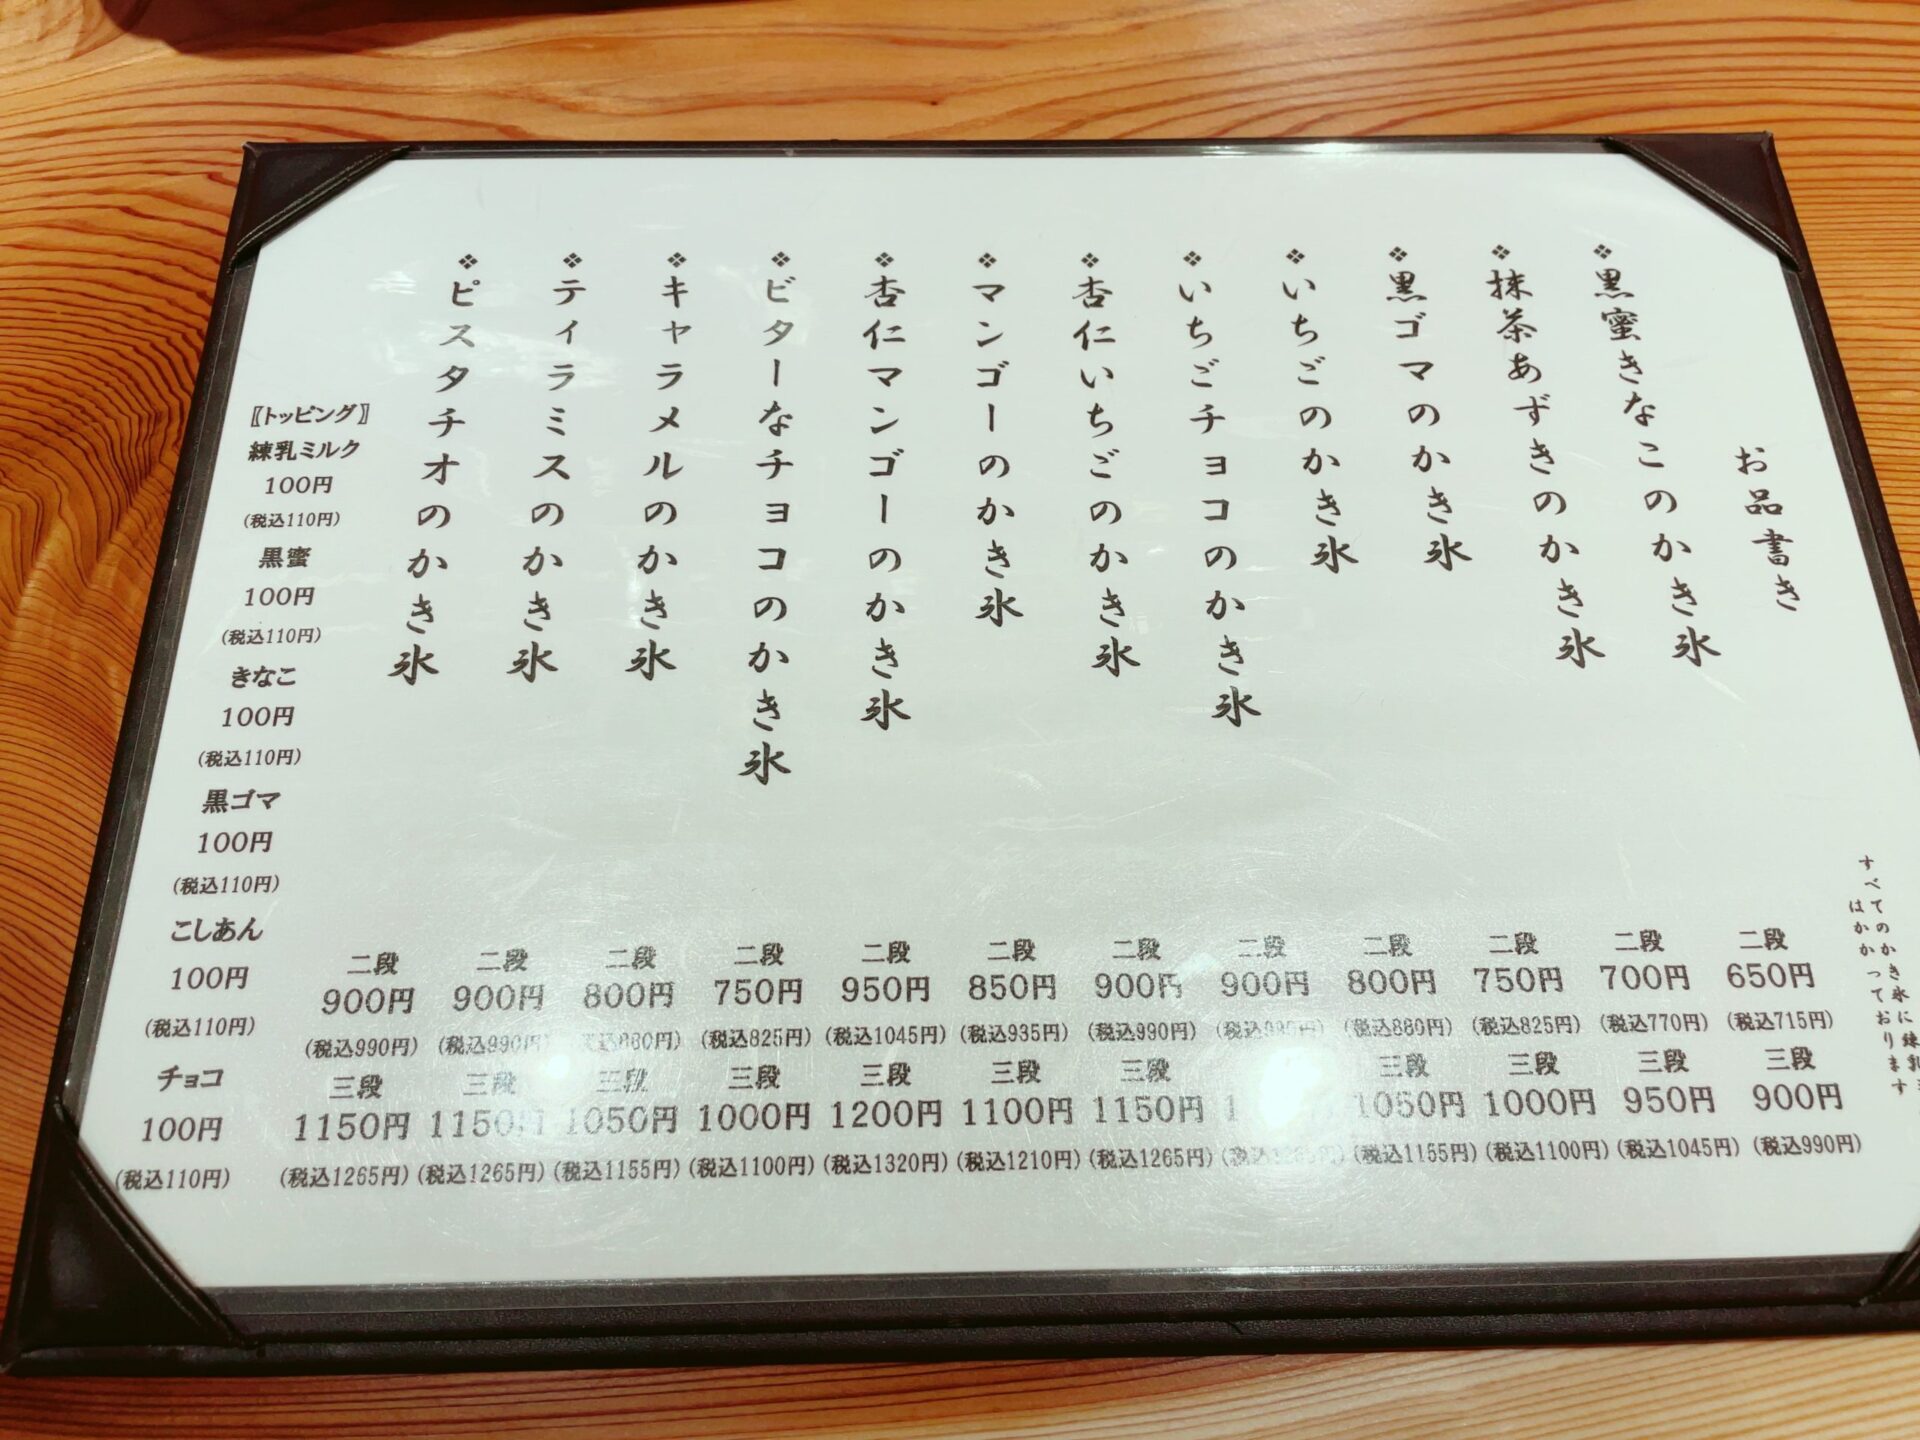 お品書き
すべてのかき氷に練乳
はかかっております
❖黒蜜きなこのかき氷
二段
650円
(税込715円)
三段
900円
(税込990円)
❖抹茶あずきのかき氷
二段
700円
(税込770円)
三段
950円
(税込1045円)
❖黒ゴマのかき氷
二段
750円
(税込825円)
三段
1000円
(税込1100円)
❖いちごのかき氷
二段
800円
(税込880円)
三段
1050円
(税込1155円)
❖いちごチョコのかき氷
二段
900円
(税込990円)
(税込1265円)
❖杏仁いちごのかき氷
二段
900円
(税込990円)
三段
1150円
(税込1265円)
❖マンゴーのかき氷
二段
850円
(税込935円)
三段
1100円
(税込1210円)
❖杏仁マンゴーのかき氷
二段
950円
(税込1045円)
三段
1200円
(税込1320円)
❖ビターなチョコのかき氷
二段
750円
(税込825円)
三段
1000円
(税込1100円)
❖キャラメルのかき氷
二段
800円
(税込880円)
三段
1050円
(税込1155円)
❖ティラミスのかき氷
二段
900円
(税込990円)
三段
1150円
(税込1265円)
❖ピスタチオのかき氷
二段
900円
(税込990円)
三段
1150円
(税込1265円)
〖トッピング〗
練乳ミルク
100円
(税込110円)
黒蜜
100円
(税込110円)
きなこ
100円
(税込110円)
黒ゴマ
100円
(税込110円)
こしあん
100円
(税込110円)
チョコ
100円
(税込110円)